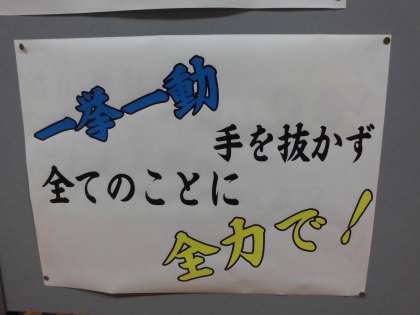 一挙一動
手を抜かず
全てのことに
全力で！